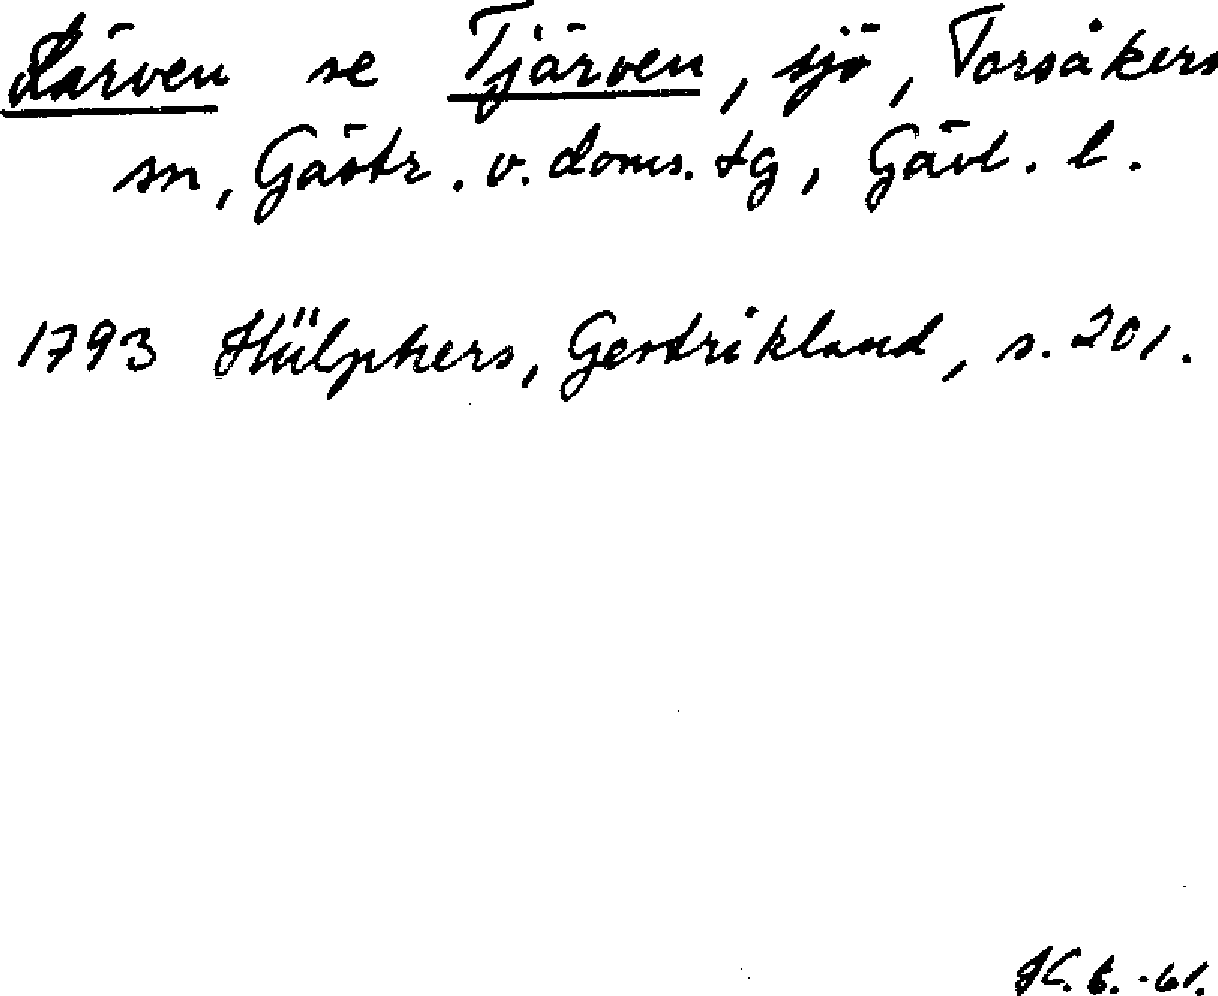 Kärven se Tjärven, sjö, Torsåkers
sn, Gästr. v. doms. tg, Gävl. l.
1793 Hülphers, Gestrikland, s. 201.
K. B. -61.